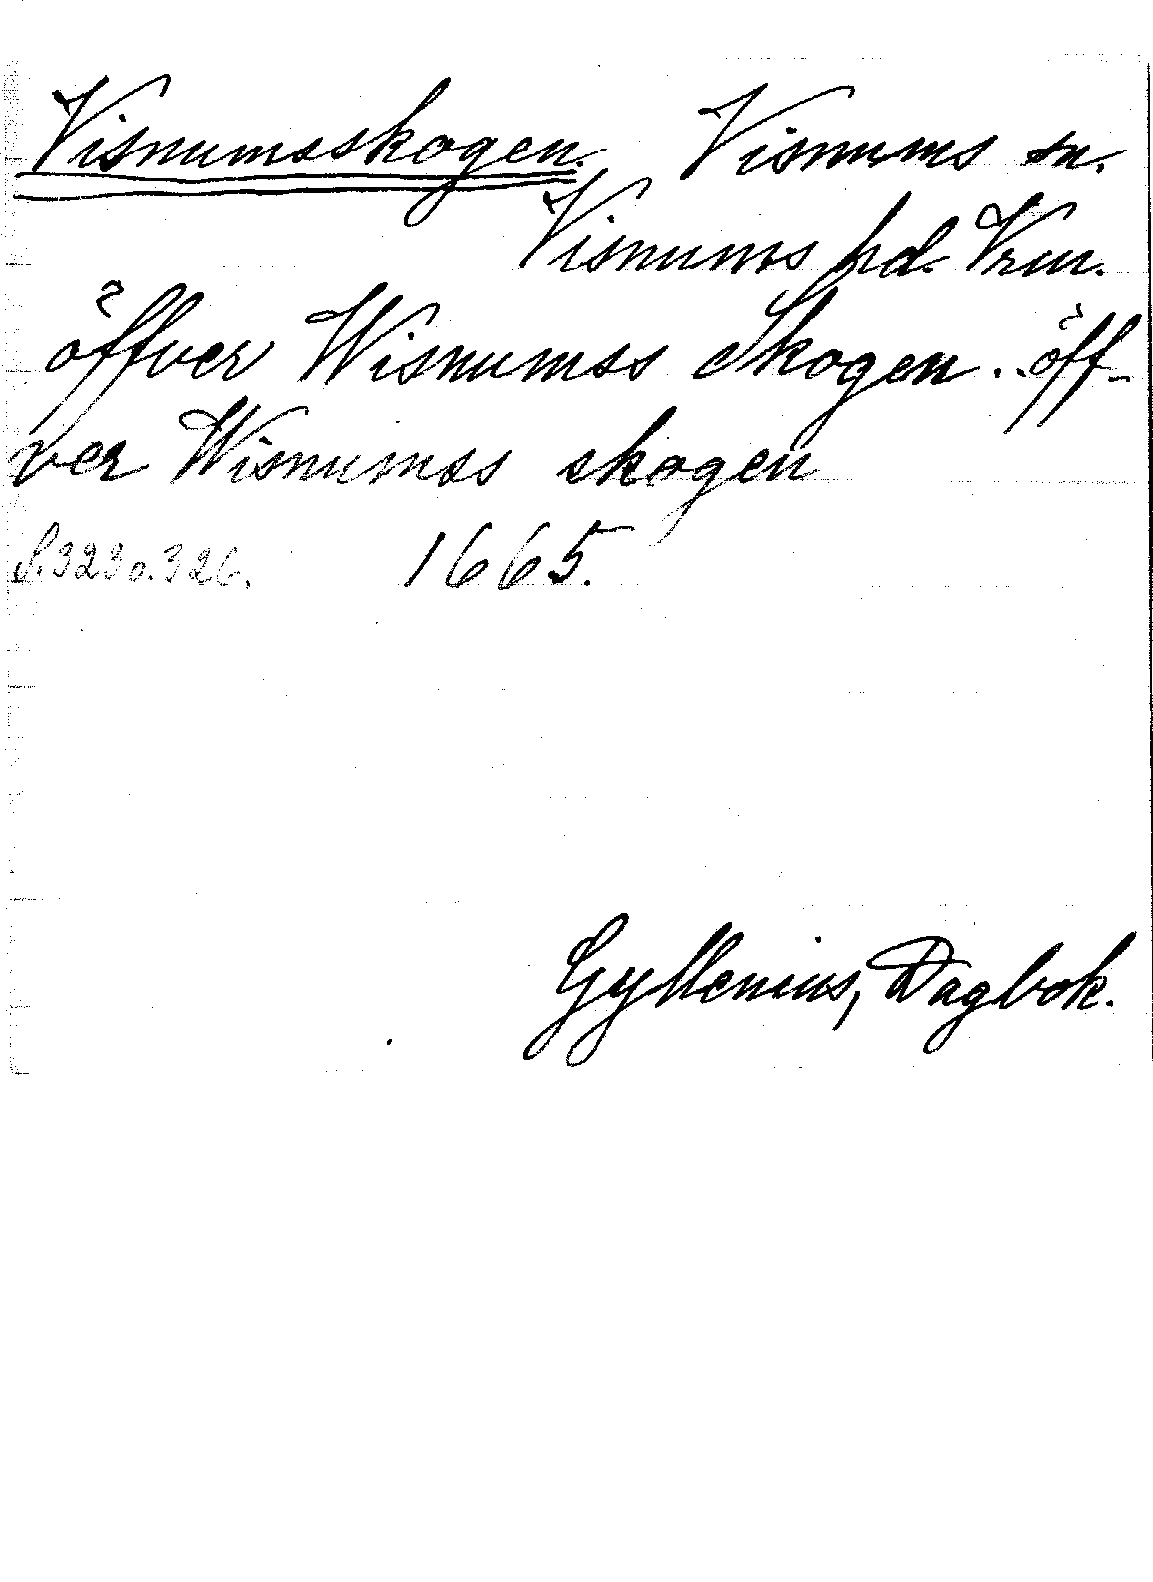 Visnumsskogen. Visnums sn.
Visnums hd. Vrm.
öffver Wisnumss Skogen. öff-
ver Wisnumss skogen
S. 323 o. 326. 1665.
Gyllenius, Dagbok.